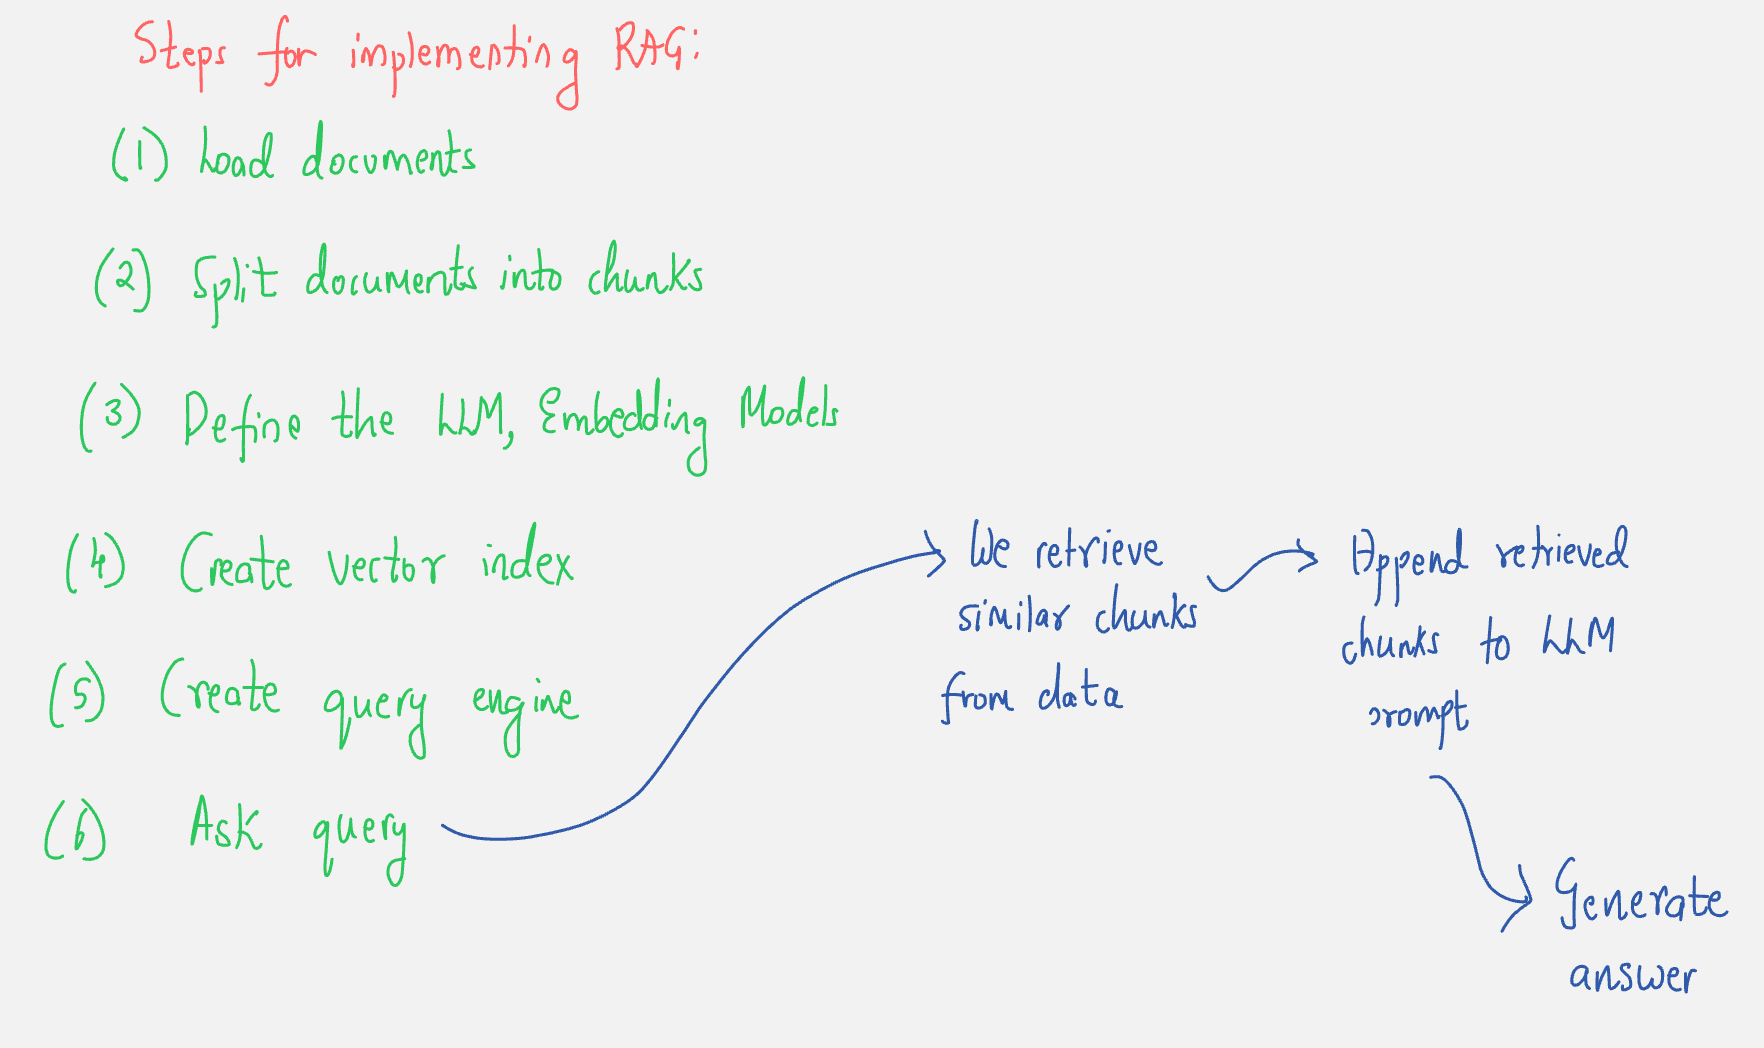 Steps for implementing RAG:
(1) Load documents
(2) Split documents into chunks
(3) Define the LLM, Embedding Models
(4) Create vector index
(5) Create query engine
(6) Ask query
We retrieve
similar chunks
from data
Append retrieved
chunks to LLM
prompt
Generate
answer